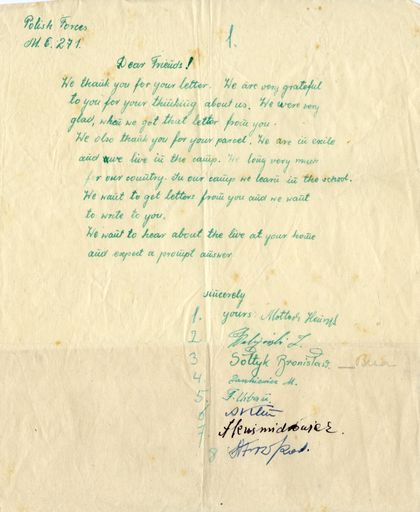 Polish Forces
M.E. 271.
1.
Dear Friends!
We thank you for your letter. We are very grateful
to you for your thinking about us. We were very
glad, when we got that letter from you.
We also thank you for your parcel. We are in exile
and we live in the camp. We long very much
for our country. In our camp we learn in the school.
We want to get letters from you and we want
to write to you.
We want to hear about the live at your home
and expect a prompt answer
sincerely
1. yours:
2.
3 Sołtyk Bronisław
4 M.
5. F. Urban
6
7
8